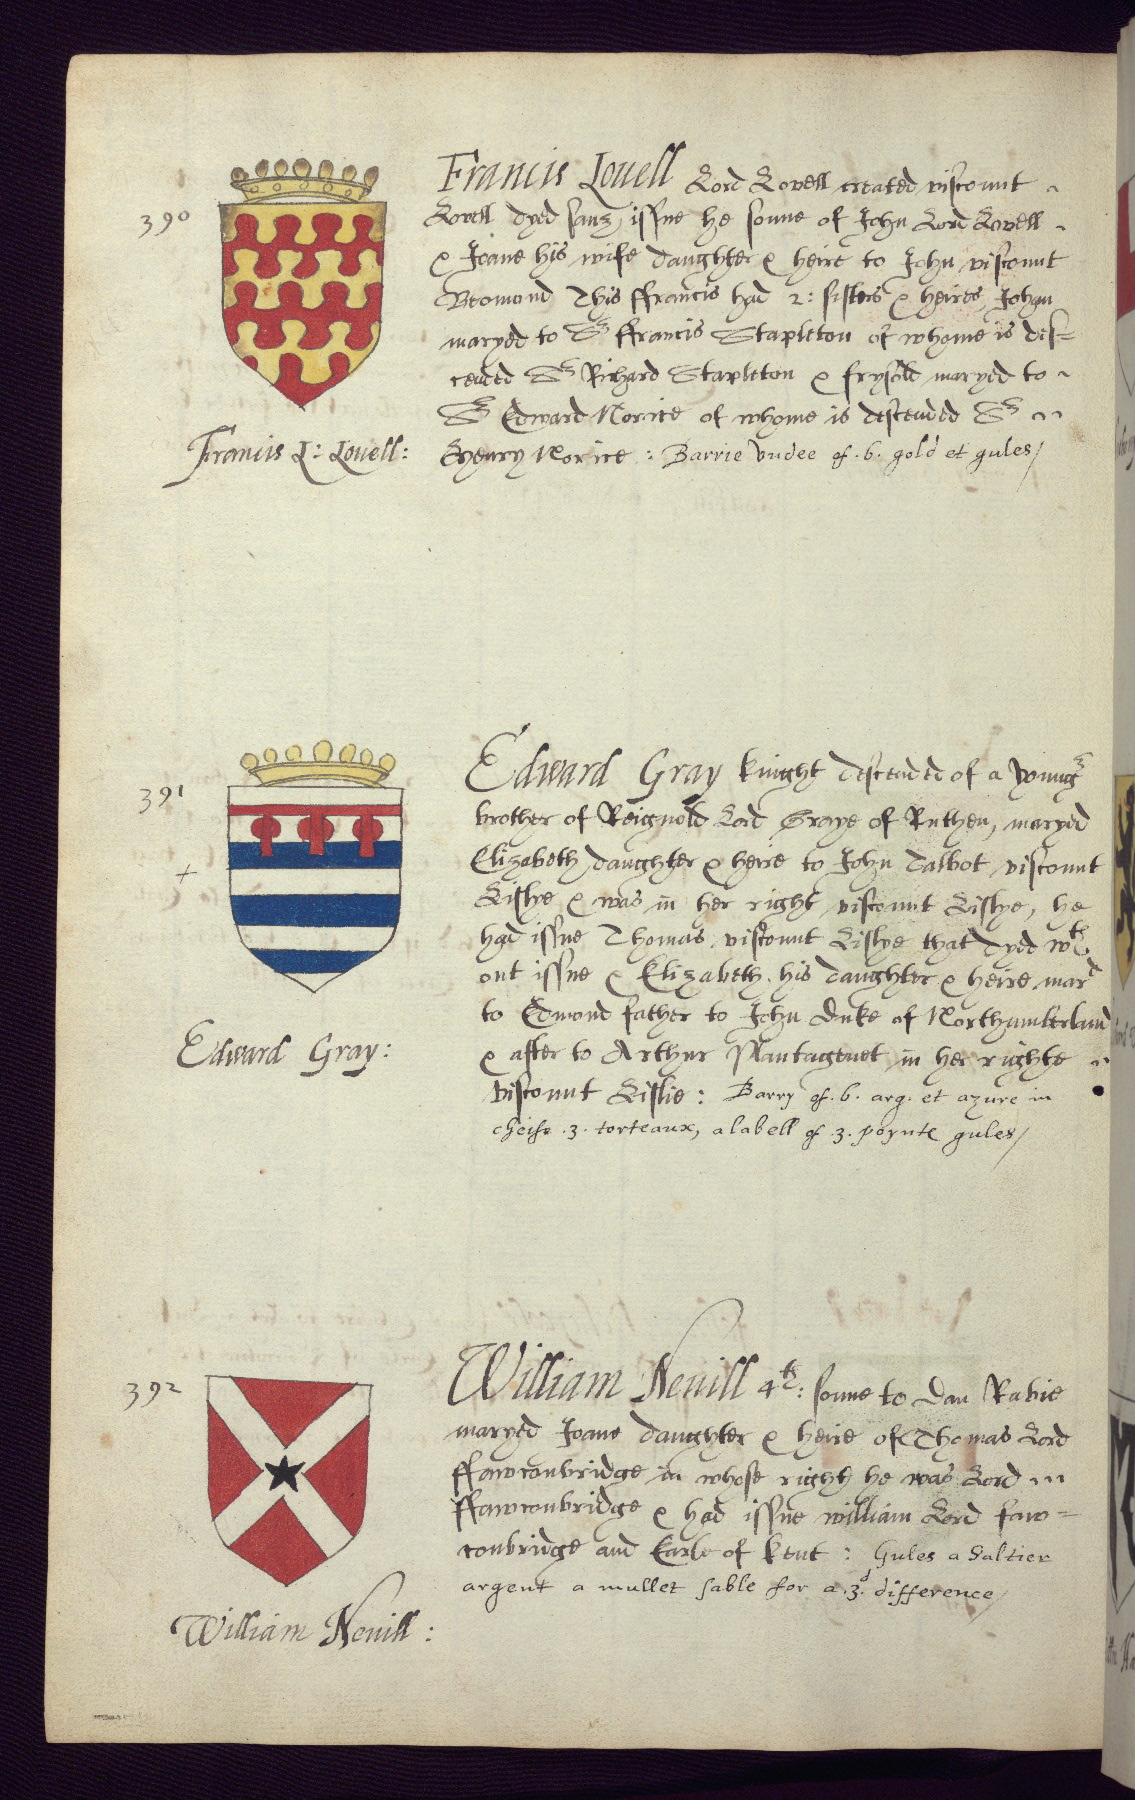 390
Francis Lovell Lord Lovell created viscount
Lovell dyed sanz issue he sonne of John Lord Lovell
& Joane his wife daughter & heire to John viscount
Beomond This ffrancis had 2: sisters & heires, Johan
maryed to Sr ffrancis Stapleton of whome is des=
cended Sr Richard Stapleton & fryswld maryed to
Sr Edward Norice of whome is descended Sr
Henry Norice : Barrie undee of .6. gold et gules/
Francis L: Lovell:
391
+
Edward Gray knight descended of a youngr
brother of Reignold Lord Graye of Ruthen, maryed
Elizabeth daughter & heire to John Talbot viscount
Lislye & was in her right viscount Lislye, he
had issue Thomas viscount Lislye that dyed wth
out issue & Elizabeth his daughter & heire mard
to Edmond father to John Duke of Northumberland
& after to Arthur Plantagenet in her righte
viscount Lislie : Barry of .6. arg. et azure in
cheife .3. torteaux, a labell of 3. poynte gules/
Edward Gray:
392
William Nevill 4th: sonne to Dan Rabie
maryed Joane daughter & heire of Thomas Lord
ffawconbridge in whose right he was Lord
ffawconbridge & had issue william Lord faw=
conbridge and Earle of Kent : Gules a Saltier
argent a mullet sable for a .3.d difference/
William Nevill :